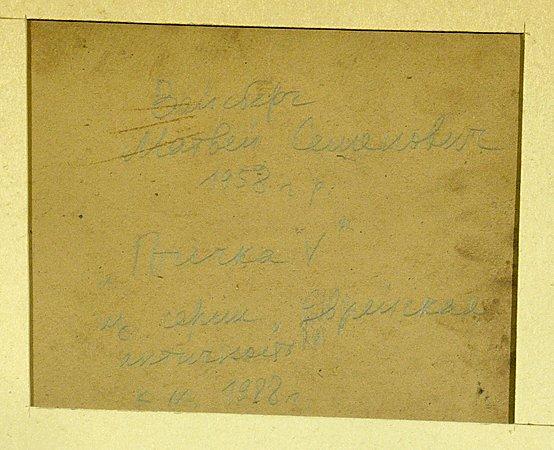 Вайсберг
Матвей Семенович
1958 г. р.
"Птичка V"
из серии "Еврейская
античность"
к. м. 1988 г.